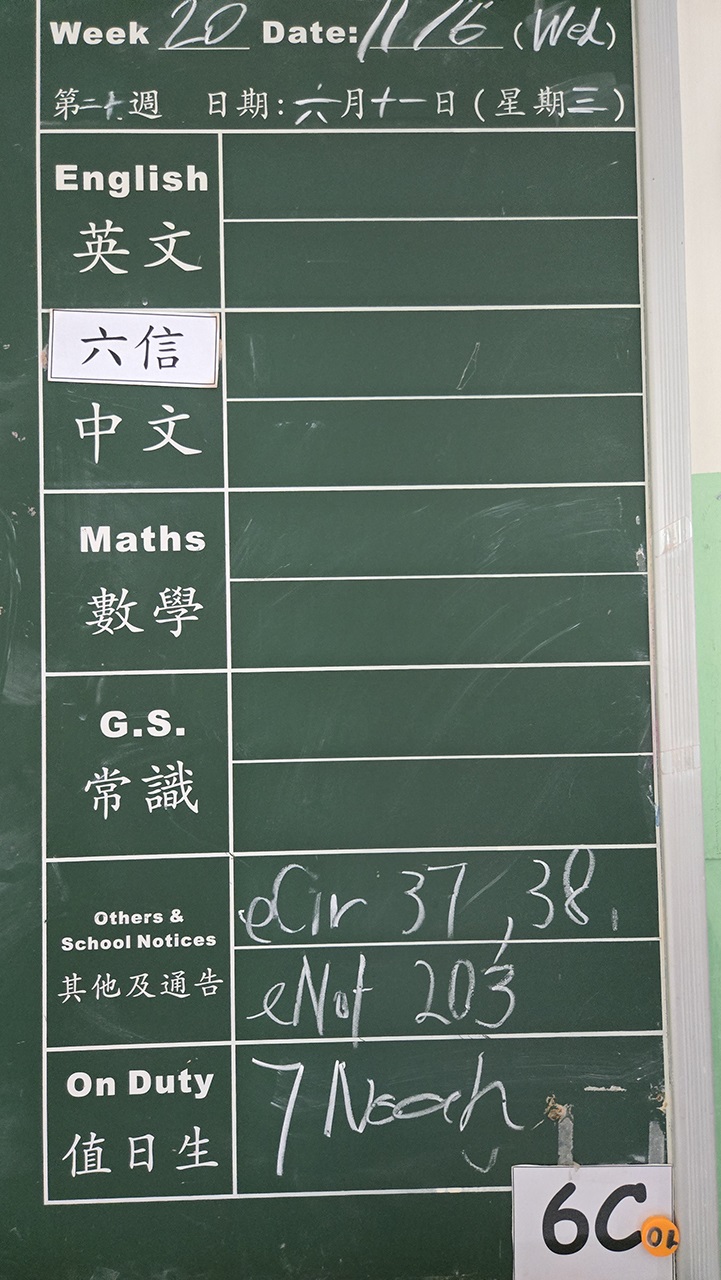 Week 20 Date: 11/6 (Wed)
第二十週 日期: 六月十一日 (星期三)
English
英文
六信
中文
Maths
數學
G.S.
常識
Others &
School Notices
其他及通告
eCir 37, 38
eNot 203
On Duty
值日生
7 Noah
6C